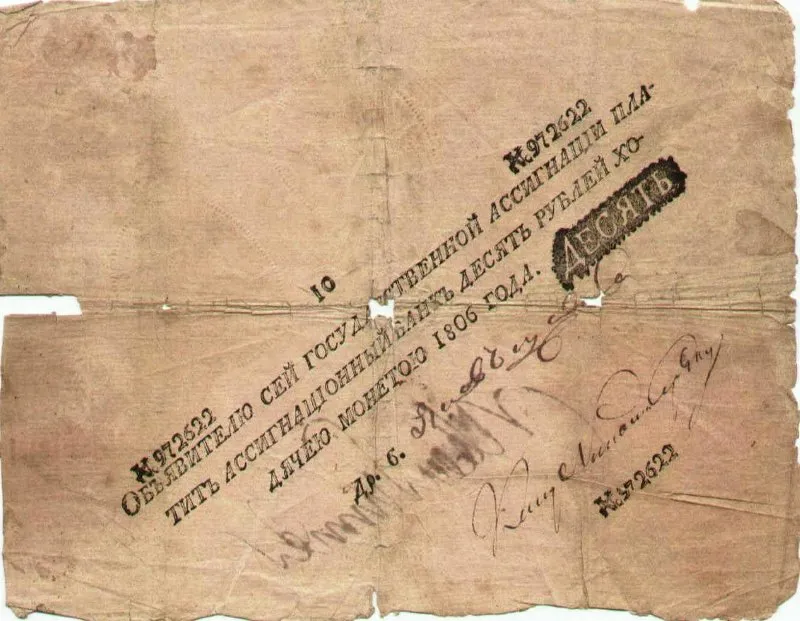 №972622
№972622
10
Объявителю сей государственной ассигнаціи пла-
титъ ассигнаціонный банкъ десять рублей хо-
дячею монетою 1806 года.
ДЕСЯТЬ
Др. 6.
№972622